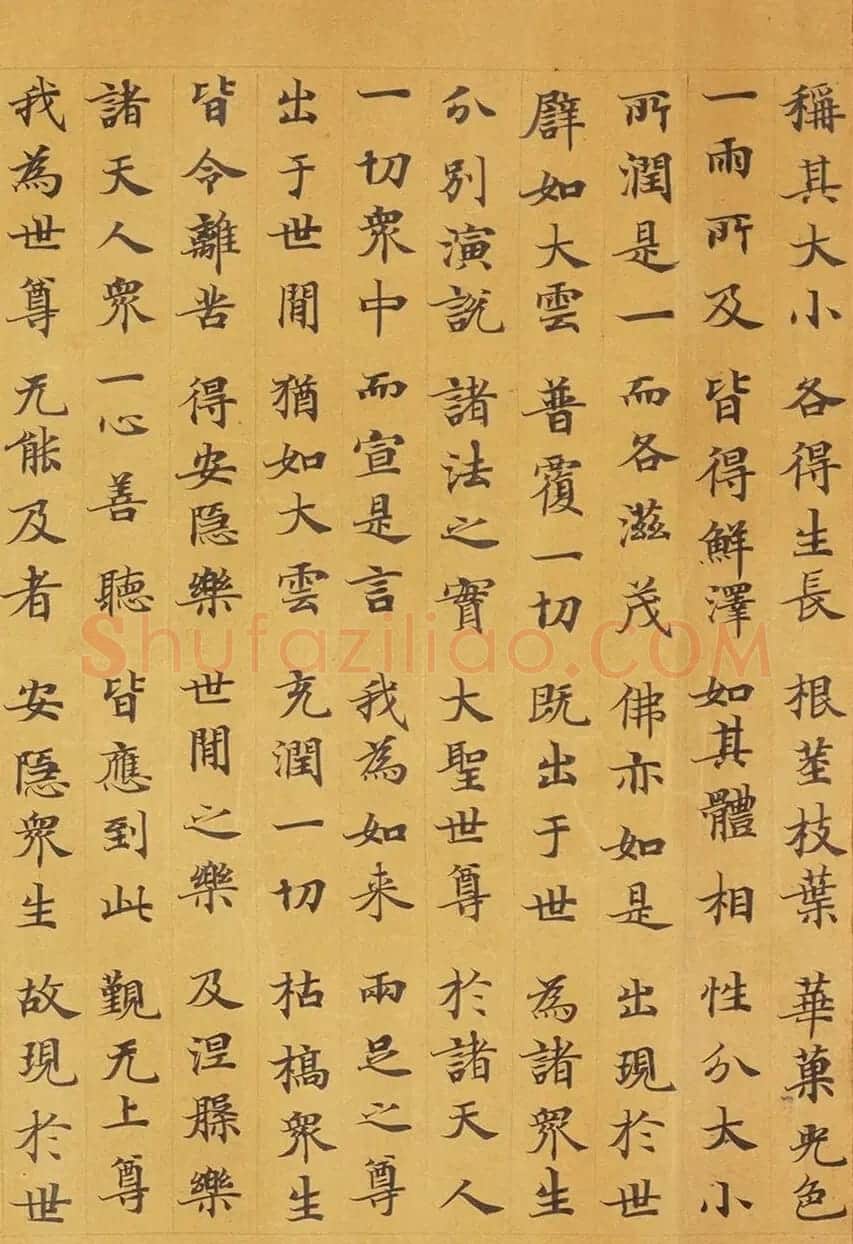 稱其大小 各得生長 根莖枝葉 華菓光色
一雨所及 皆得鮮澤 如其體相 性分大小
所潤是一 而各滋茂 佛亦如是 出現於世
譬如大雲 普覆一切 既出于世 為諸眾生
分別演說 諸法之實 大聖世尊 於諸天人
一切眾中 而宣是言 我為如来 兩足之尊
出于世間 猶如大雲 充潤一切 枯槁眾生
皆令離苦 得安隱樂 世間之樂 及涅槃樂
諸天人眾 一心善聽 皆應到此 觀无上尊
我為世尊 无能及者 安隱眾生 故現於世
Shufaziliao.COM